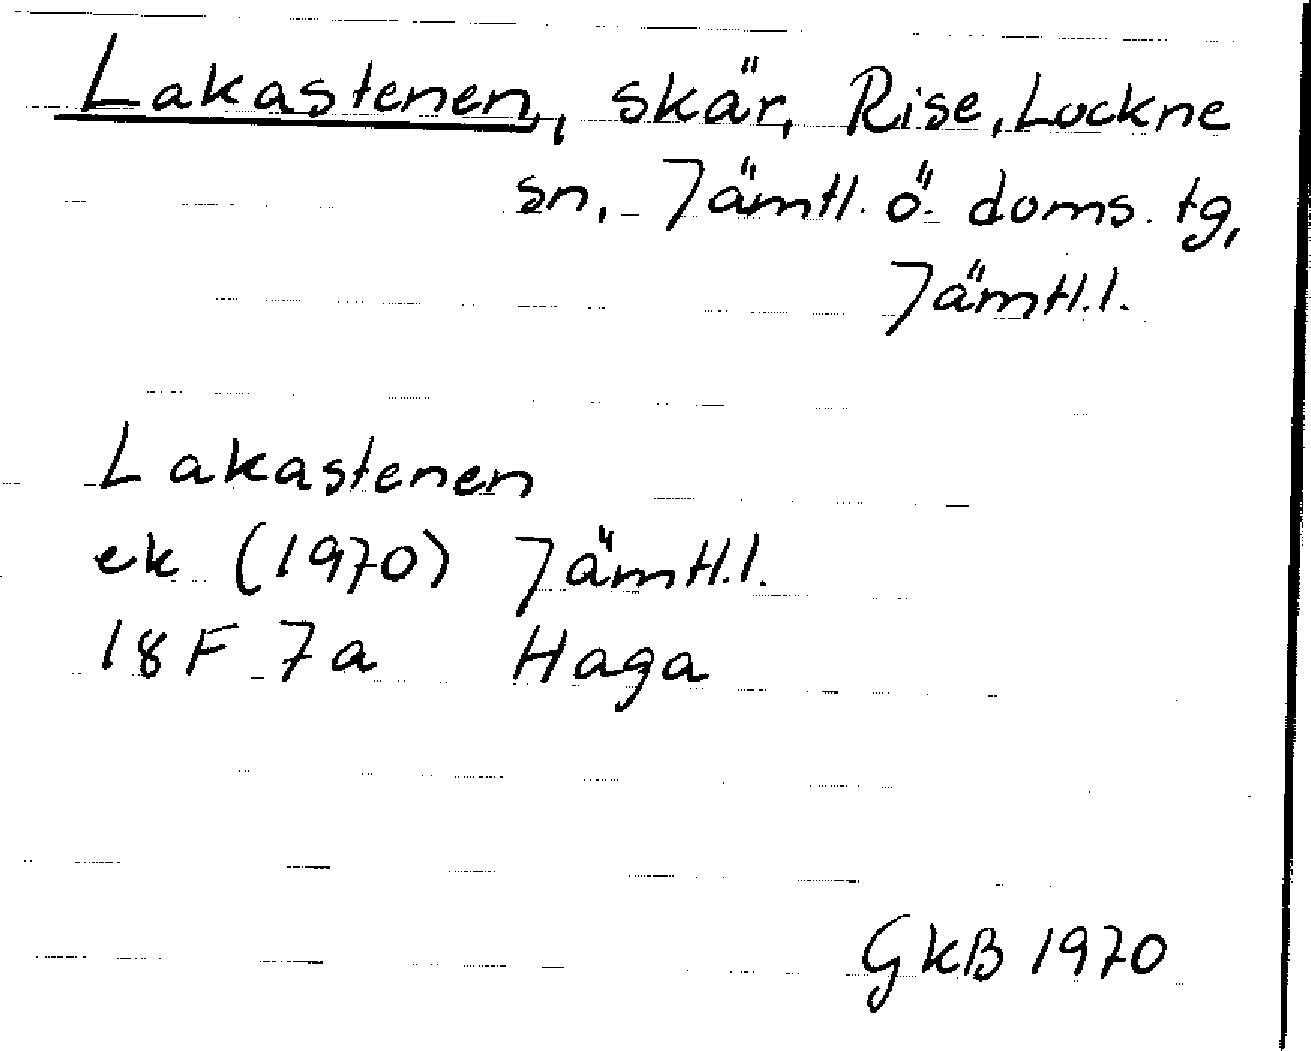 Lakastenen, skär, Rise, Lockne
sn, Jämtl. ö. doms. tg,
Jämtl.l.
Lakastenen
ek (1970) Jämtl.l.
18F 7a Haga
GKB 1970